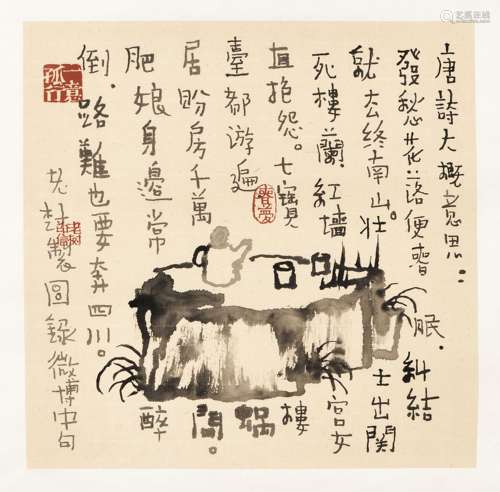 唐詩大概意思：
發愁花落便春眠．糾結
就去終南山。壯士出関
死樓蘭紅墻宮女
直抱怨。七寶樓
臺都游遍蝸
居盼房千萬間。
肥娘身邊常醉
倒．路難也要奔四川。
老樹製圖錄微博中句
一意孤行
春夢